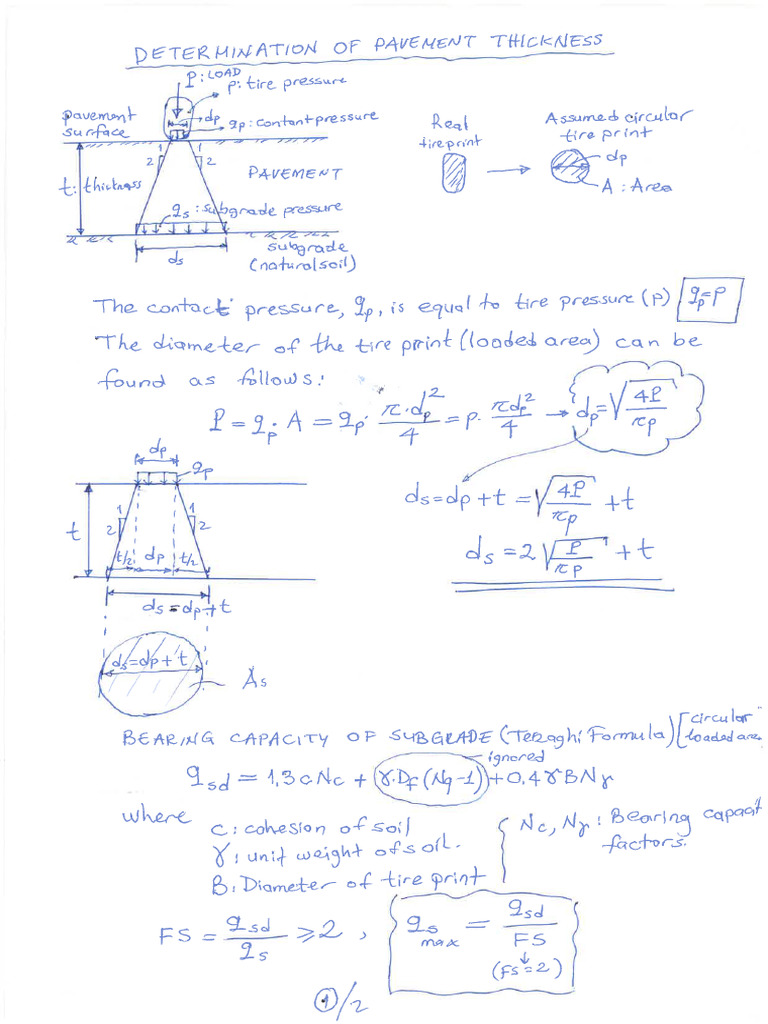 DETERMINATION OF PAVEMENT THICKNESS
P: LOAD
p: tire pressure
dp
qp: contant pressure
pavement
surface
1
2
1
2
t: thickness
PAVEMENT
qs: subgrade pressure
ds
subgrade
(natural soil)
Real
tire print
Assumed circular
tire print
dp
A: Area
The contact pressure, qp, is equal to tire pressure (p) qp=p
The diameter of the tire print (loaded area) can be
found as follows:
P = qp.A = qp.π.dp²/4 = p.πdp²/4 → dp=√4P/πp
dp
qp
t
1
2
1
2
t/2 dp t/2
ds=dp+t
ds=dp+t
As
ds=dp+t=√4P/πp+t
ds=2√P/πp+t
BEARING CAPACITY OF SUBGRADE (Terzaghi Formula) [circular
loaded area
ignored
qsd=1,3cNc+γ.Df(Nq-1)+0.4γBNγ
where
c: cohesion of soil
γ: unit weight of soil.
B: Diameter of tire print
Nc, Nγ: Bearing capacit
factors.
FS=qsd/qs≥2, qs max=qsd/FS
(FS=2)
1/2